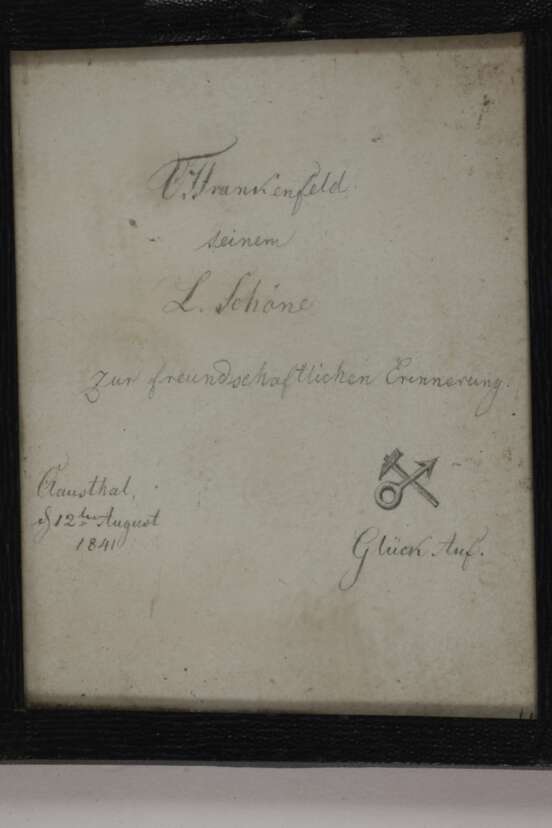 C. Frankenfeld
seinem
L. Schöne
zur freundschaftlichen Erinnerung.
Clausthal,
d 12ten August
1841
Glück Auf.